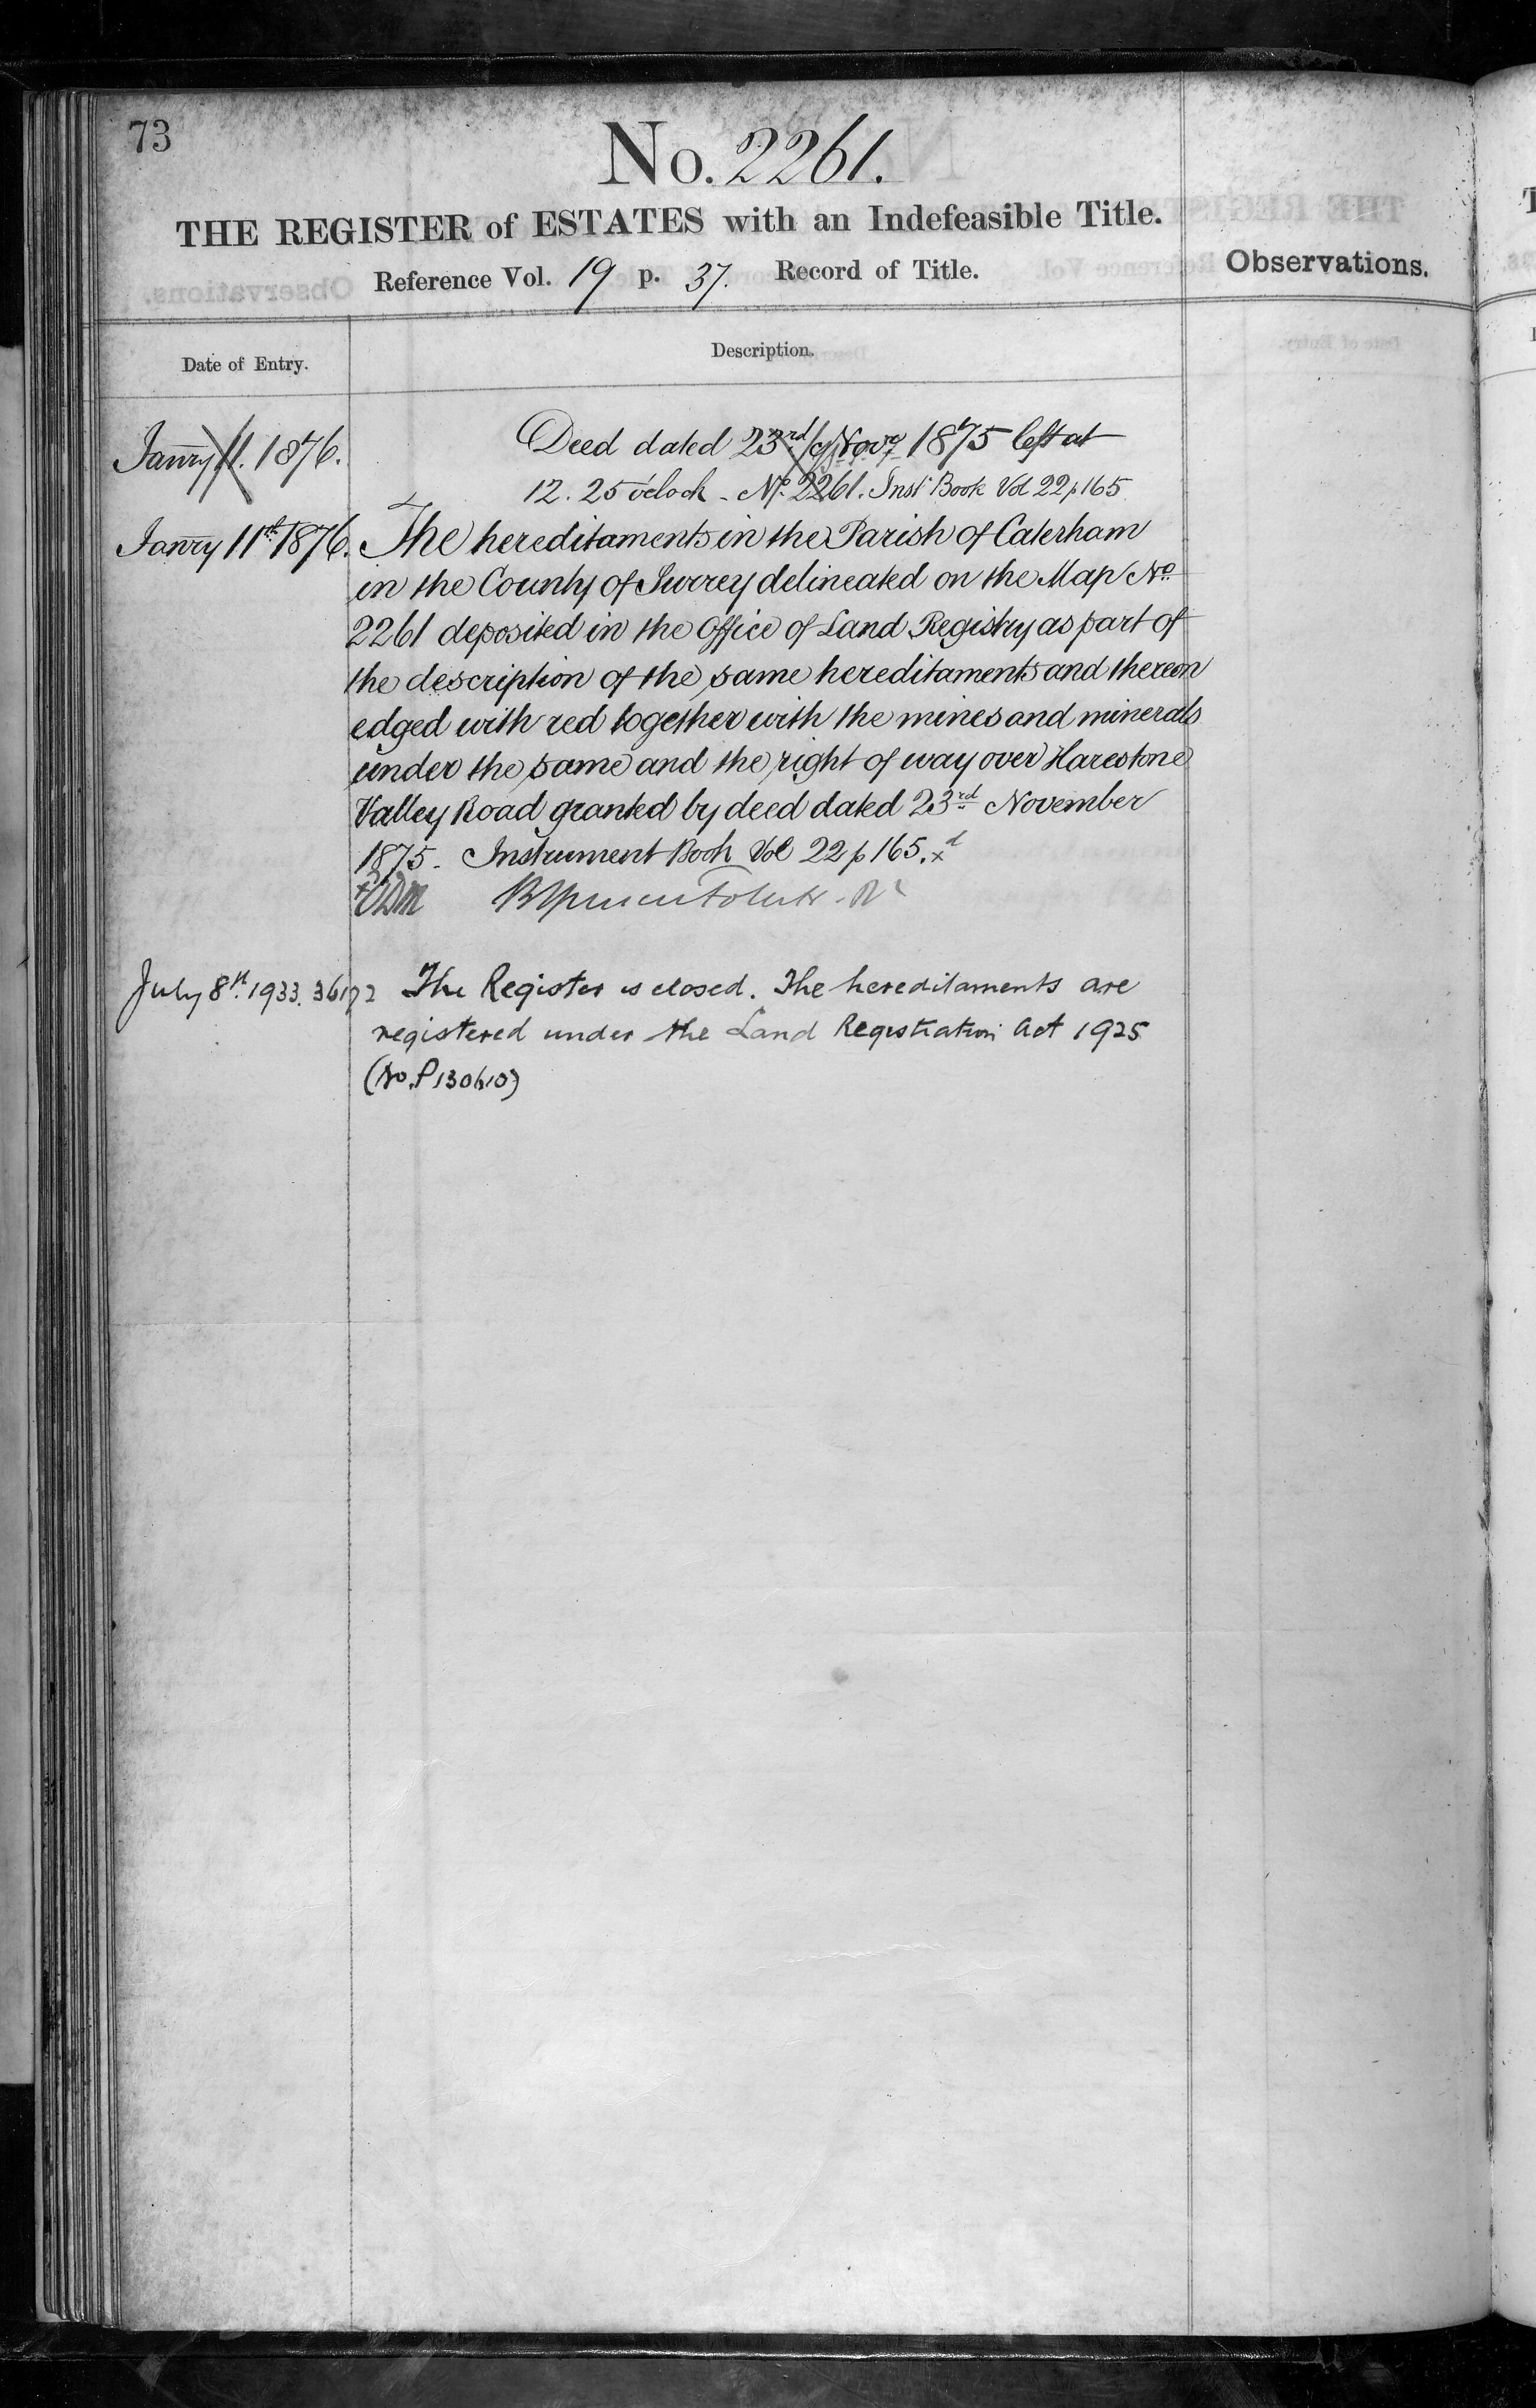 73
No. 2261.
THE REGISTER of ESTATES with an Indefeasible Title.
Reference Vol. 19 p. 37. Record of Title.
Observations.
Date of Entry.
Description.
Janry 11. 1876.
Deed dated 23rd Novr 1875 left at
12. 25 o'clock - No. 2261. Inst Book Vol 22 p 165
Janry 11th 1876.
The hereditaments in the Parish of Caterham
in the County of Surrey delineated on the Map No.
2261 deposited in the Office of Land Registry as part of
the description of the same hereditaments and thereon
edged with red together with the mines and minerals
under the same and the right of way over Harestone
Valley Road granted by deed dated 23rd November
1875. Instrument Book Vol 22 p 165. x
July 8th 1933.
The Register is closed. The hereditaments are
registered under the Land Registration Act 1925
(No. P130610)